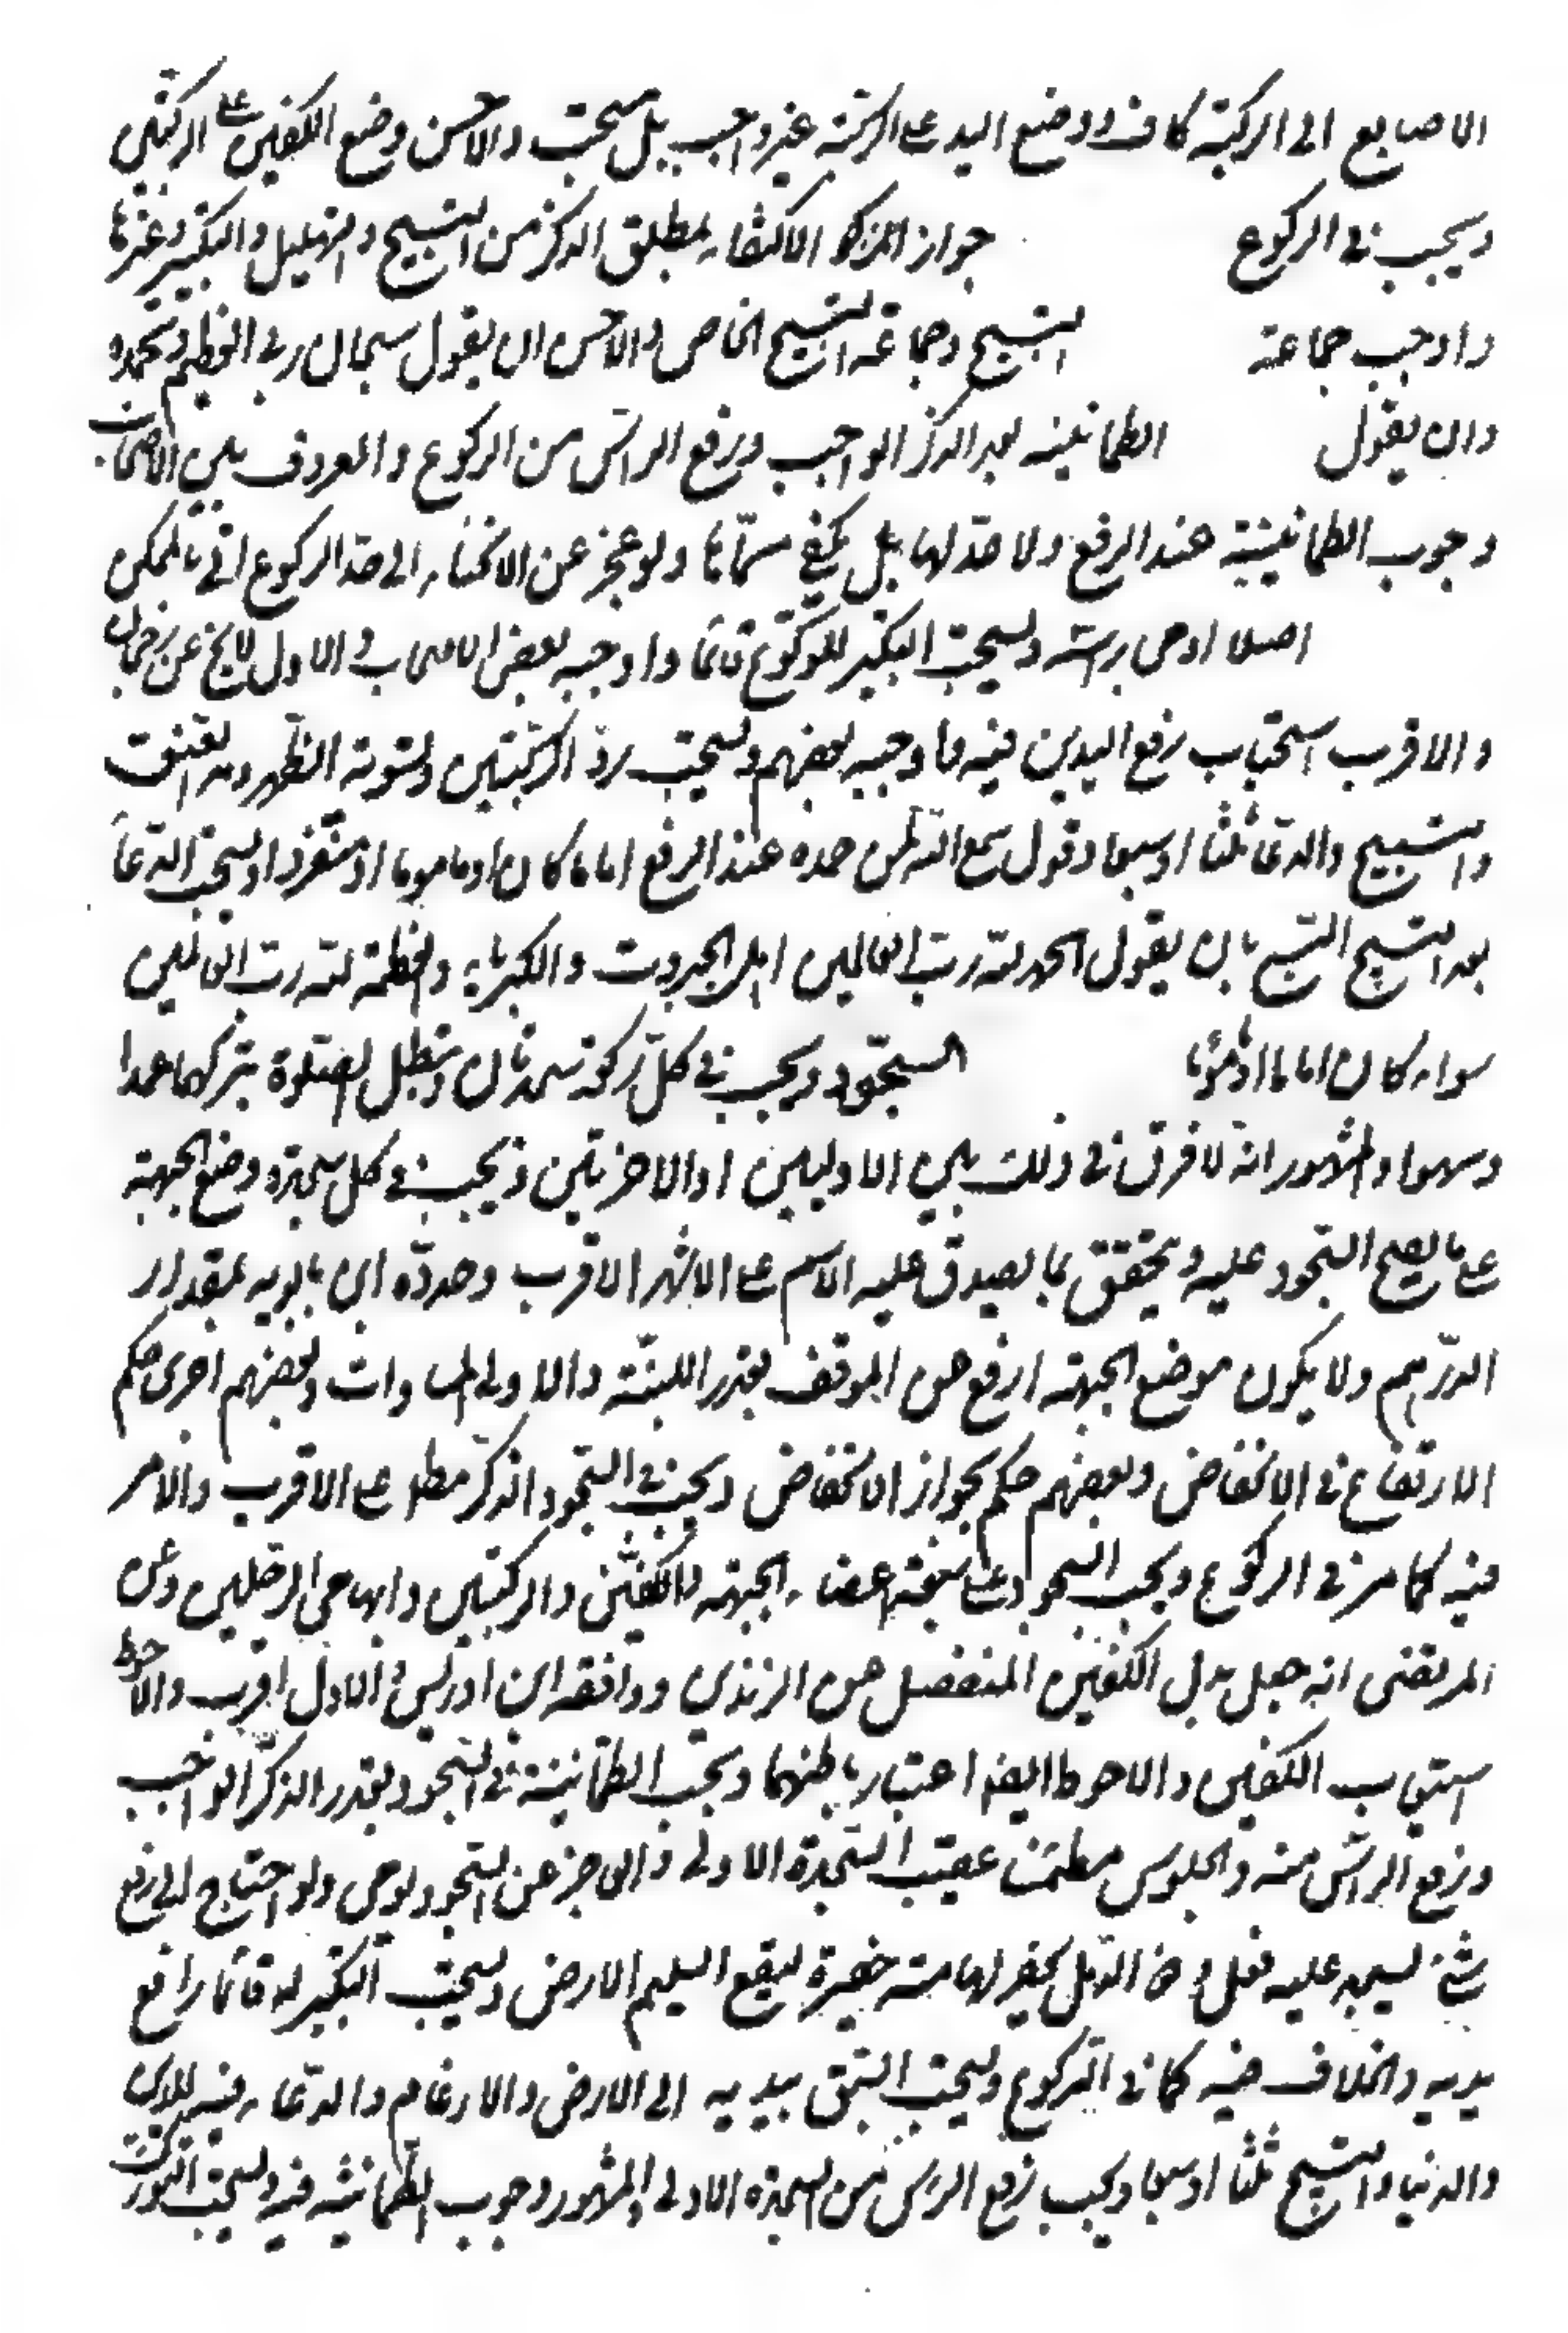 الاصابع الى الركبة كاف ووضع اليد على الركبة غير واجب بل مستحب والاحسن وضع الكفين على الركبتين
ويجب في الركوع جواز الاكتفاء بمطلق الذكر من التسبيح والتهليل والتكبير وغيرها
واوجب جماعة التسبيح وجماعة التسبيح الخاص والاحسن ان يقول سبحان ربي العظيم وبحمده
وان يقول الطمانينة بعد الذكر الواجب ورفع الراس من الركوع والمعروف بين الاصحاب
وجوب الطمانينة عند الرفع ولا حد لها بل يكفي مسماها ولو عجز عن الانحناء الى حد الركوع اتى بالممكن
اصلا اومى براسه ويستحب التكبير للركوع قائما واوجبه بعض الاصحاب والاول لا يخ عن رجحان
والاقرب استحباب رفع اليدين فيه واوجبه بعضهم ويستحب رد الركبتين وتسوية الظهر ومد العنق
والتسبيح والدعا ثلثا او سبعا وقول سمع الله لمن حمده عند الرفع اماما كان او ماموما او منفردا ويستحب الدعا
بعد التسبيح بان يقول الحمد لله رب العالمين اهل الجبروت والكبرياء والعظمة لله رب العالمين
سواء كان اماما او مأموما السجود ويجب في كل ركعة سجدتان وتبطل الصلوة بتركهما عمدا
وسهوا والمشهور انه لا فرق في ذلك بين الاوليين او الاخرتين ويجب في كل سجدة وضع الجبهة
على ما يصح السجود عليه ويتحقق بما يصدق عليه الاسم على الاشهر الاقرب وحدده ابن بابويه بمقدار
الدرهم ولا يكون موضع الجبهة ارفع من الموقف بقدر اللبنة والاولى المساوات وبعضهم اجرى حكم
الارتفاع في الانخفاض وبعضهم حكم بجواز الانخفاض ويجب في السجود الذكر مطلقا على الاقرب والامر
فيه كما مر في الركوع ويجب السجود على سبعة اعضاء الجبهة والكفين والركبتين وابهامي الرجلين وعن
المرتضى انه جعل بدل الكفين المنفصل من الزندي ووافقه ابن ادريس والاول اقرب والاحوط
استيعاب الكفين والاحوط ايضا اعتبار باطنهما ويجب الطمانينة في السجود بقدر الذكر الواجب
ورفع الراس منه والجلوس مطمئنا عقيب السجدة الاولى والعاجز عن السجود يومى ولو احتاج الى رفع
شئ ليسجد عليه فعل وذو الدمل يحفر لها حفيرة ليقع السليم الارض ويستحب التكبير له قائما رافعا
يديه والخلاف فيه كما في الركوع ويستحب السبق بيديه الى الارض والارغام والدعاء فيه للدين
والدنيا والتسبيح ثلثا او سبعا ويجب رفع الراس من السجدة الاولى والمشهور وجوب الطمانينة فيه ويستحب التورك